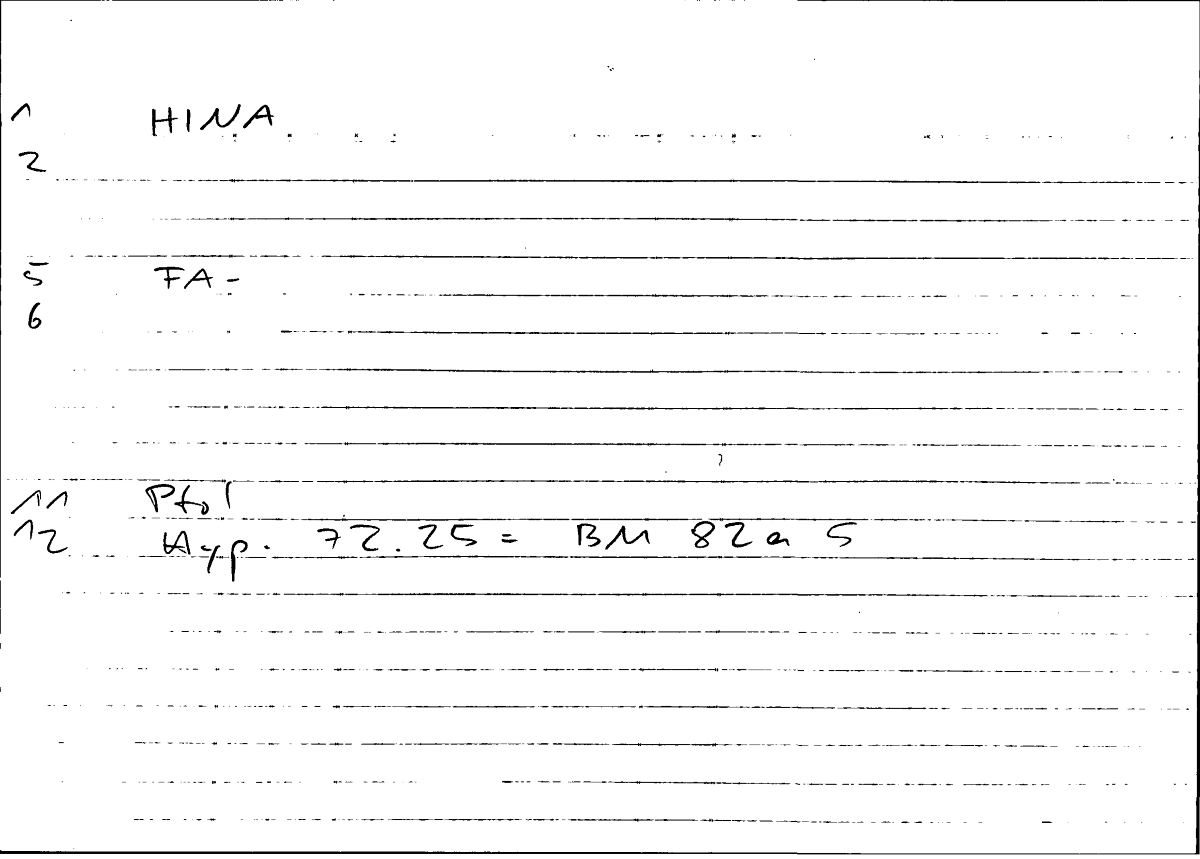 1 HINA
2
5 FA-
6
11 Ptol
12 Hyp. 72.25 = BM 82a 5